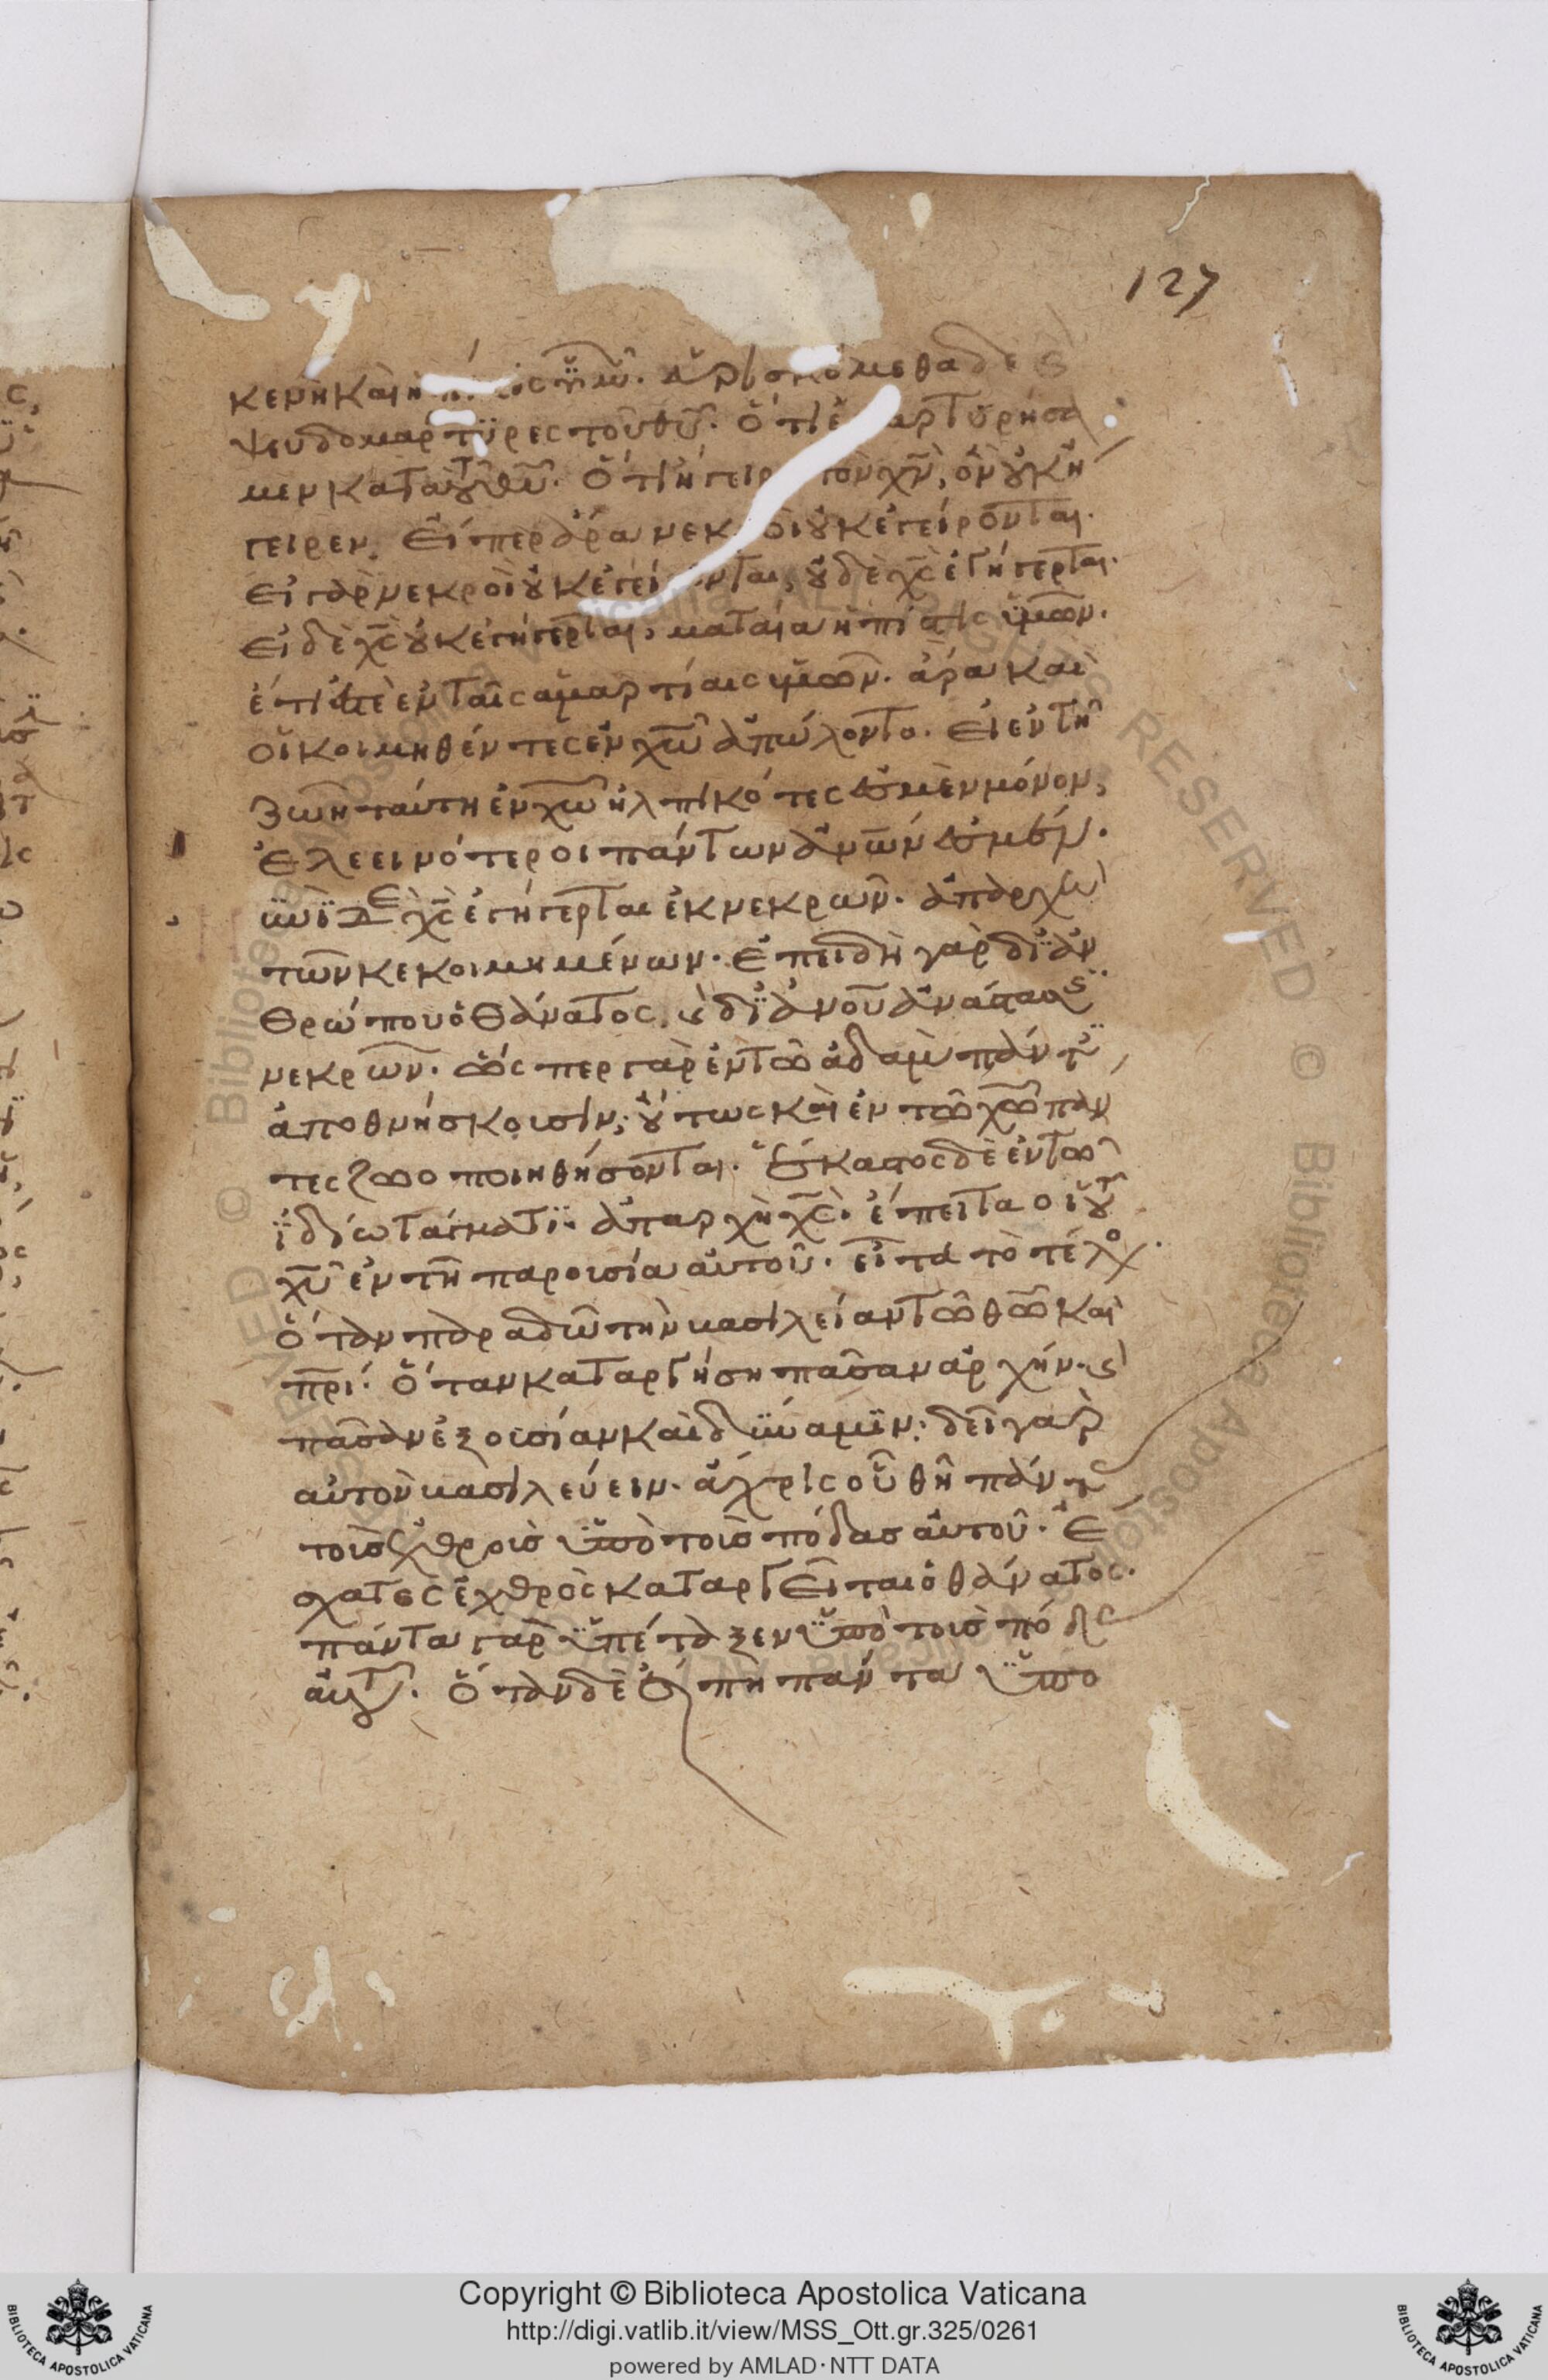 127
κενὴ καὶ ἡ πίστις ὑμῶν. εὑρισκόμεθα δὲ ϗ
ψευδομάρτυρες τοῦ θῦ. ὅτι ἐμαρτυρήσα
μεν κατὰ τοῦ θῦ. ὅτι ἤγειρε τὸν χν, ὃν οὐκ ἤ
γειρεν. εἴπερ ἄρα νεκροὶ οὐκ ἐγείρονται.
εἰ γὰρ νεκροὶ οὐκ ἐγείρονται, οὐδὲ χς ἐγήγερται.
εἰ δὲ χς οὐκ ἐγήγερται, ματαία ἡ πίστις ὑμῶν.
ἔτι ἐστὲ ἐν ταῖς ἁμαρτίαις ὑμῶν. ἄρα καὶ
οἱ κοιμηθέντες ἐν χω ἀπώλοντο. εἰ ἐν τῇ
ζωῇ ταύτῃ ἐν χω ἠλπικότες ἐσμὲν μόνον,
ἐλεεινότεροι πάντων ἀνων ἐσμέν.
νυνὶ δὲ χς ἐγήγερται ἐκ νεκρῶν. ἀπαρχὴ
τῶν κεκοιμημένων. ἐπειδὴ γὰρ δι ἀν
θρώπου ὁ θάνατος, ϗ δι ἀνου ἀνάστασϊς
νεκρῶν. ὥσπερ γὰρ ἐν τῶ ἀδὰμ πάντες
ἀποθνήσκουσιν, οὕτως καὶ ἐν τῶ χω πάν
τες ζωοποιηθήσονται. ἕκαστος δὲ ἐν τῶ
ἰδίω τάγματι. ἀπαρχὴ χς. ἔπειτα οἱ τοῦ
χυ ἐν τῇ παρουσία αὐτοῦ. εἶτα τὸ τέλος.
ὅταν παραδῶ τὴν βασιλείαν τῶ θω καὶ
πρι. ὅταν καταργήση πᾶσαν ἀρχὴν. ϗ
πᾶσαν ἐξουσίαν καὶ δύναμιν. δεῖ γὰρ
αὐτὸν βασιλεύειν. ἄχρις οὗ θῇ πάντας
τοὺς ἐχθροὺς ὑπὸ τοὺς πόδας αὐτοῦ. ἔ
σχατος ἐχθρὸς καταργεῖται ὁ θάνατος.
πάντα γὰρ ὑπέταξεν ὑπὸ τοὺς πόδας
αὐτοῦ. ὅταν δὲ εἴπη πάντα ὑπο
Copyright © Biblioteca Apostolica Vaticana
http://digi.vatlib.it/view/MSS_Ott.gr.325/0261
powered by AMLAD·NTT DATA